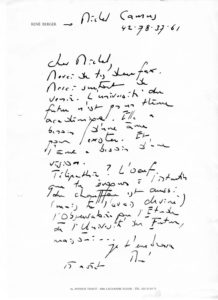 RENÉ BERGER → Michel Camus
42-78-37-61
Cher Michel,
Merci de tes deux fax.
Merci surtout de
L'université du
futur n'est pas un thème
académique. Elle a
besoin d'une âme
pour exister. Et
l'âme a besoin d'une
vision.
Télépathie ? L'oeuf
que tu
est aussi
(mais tu l'avais deviné)
l'Observatoire pour l'Etude
de l'Université du Futur,
maison...
Je t'embrasse
René
15 août